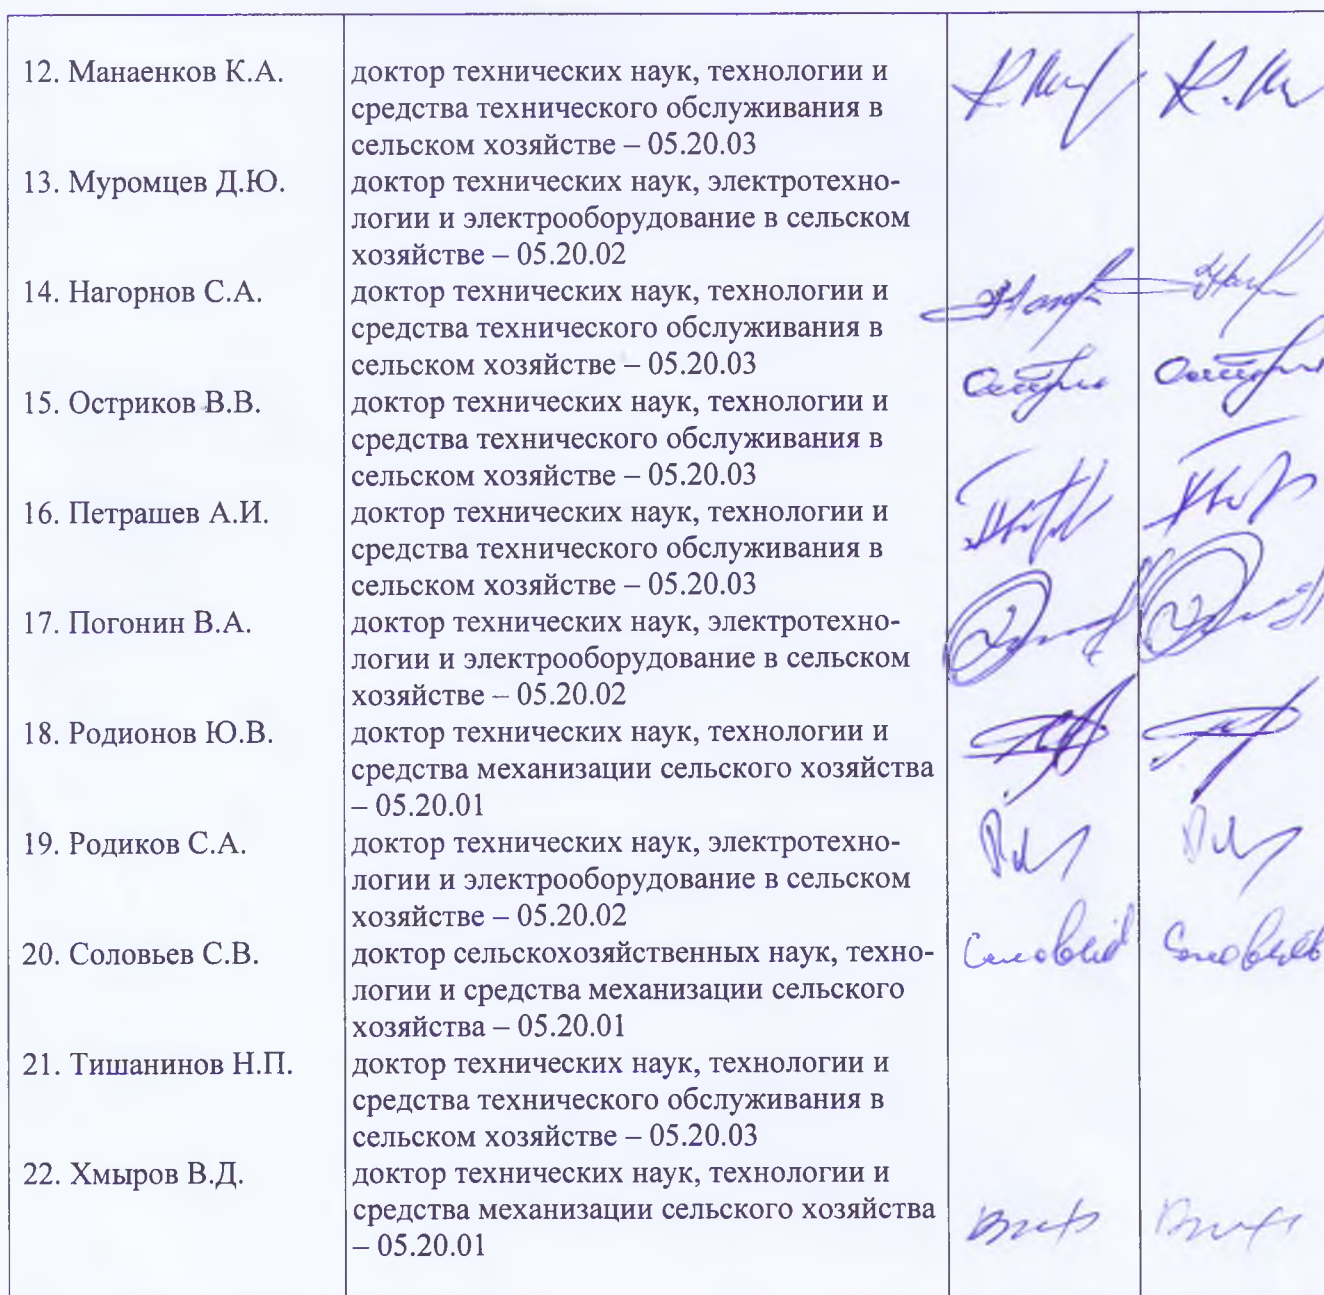 12. Манаенков К.А.
доктор технических наук, технологии и
средства технического обслуживания в
сельском хозяйстве – 05.20.03
13. Муромцев Д.Ю.
доктор технических наук, электротехно-
логии и электрооборудование в сельском
хозяйстве – 05.20.02
14. Нагорнов С.А.
доктор технических наук, технологии и
средства технического обслуживания в
сельском хозяйстве – 05.20.03
15. Остриков В.В.
доктор технических наук, технологии и
средства технического обслуживания в
сельском хозяйстве – 05.20.03
16. Петрашев А.И.
доктор технических наук, технологии и
средства технического обслуживания в
сельском хозяйстве – 05.20.03
17. Погонин В.А.
доктор технических наук, электротехно-
логии и электрооборудование в сельском
хозяйстве – 05.20.02
18. Родионов Ю.В.
доктор технических наук, технологии и
средства механизации сельского хозяйства
– 05.20.01
19. Родиков С.А.
доктор технических наук, электротехно-
логии и электрооборудование в сельском
хозяйстве – 05.20.02
20. Соловьев С.В.
доктор сельскохозяйственных наук, техно-
логии и средства механизации сельского
хозяйства – 05.20.01
21. Тишанинов Н.П.
доктор технических наук, технологии и
средства технического обслуживания в
сельском хозяйстве – 05.20.03
22. Хмыров В.Д.
доктор технических наук, технологии и
средства механизации сельского хозяйства
– 05.20.01